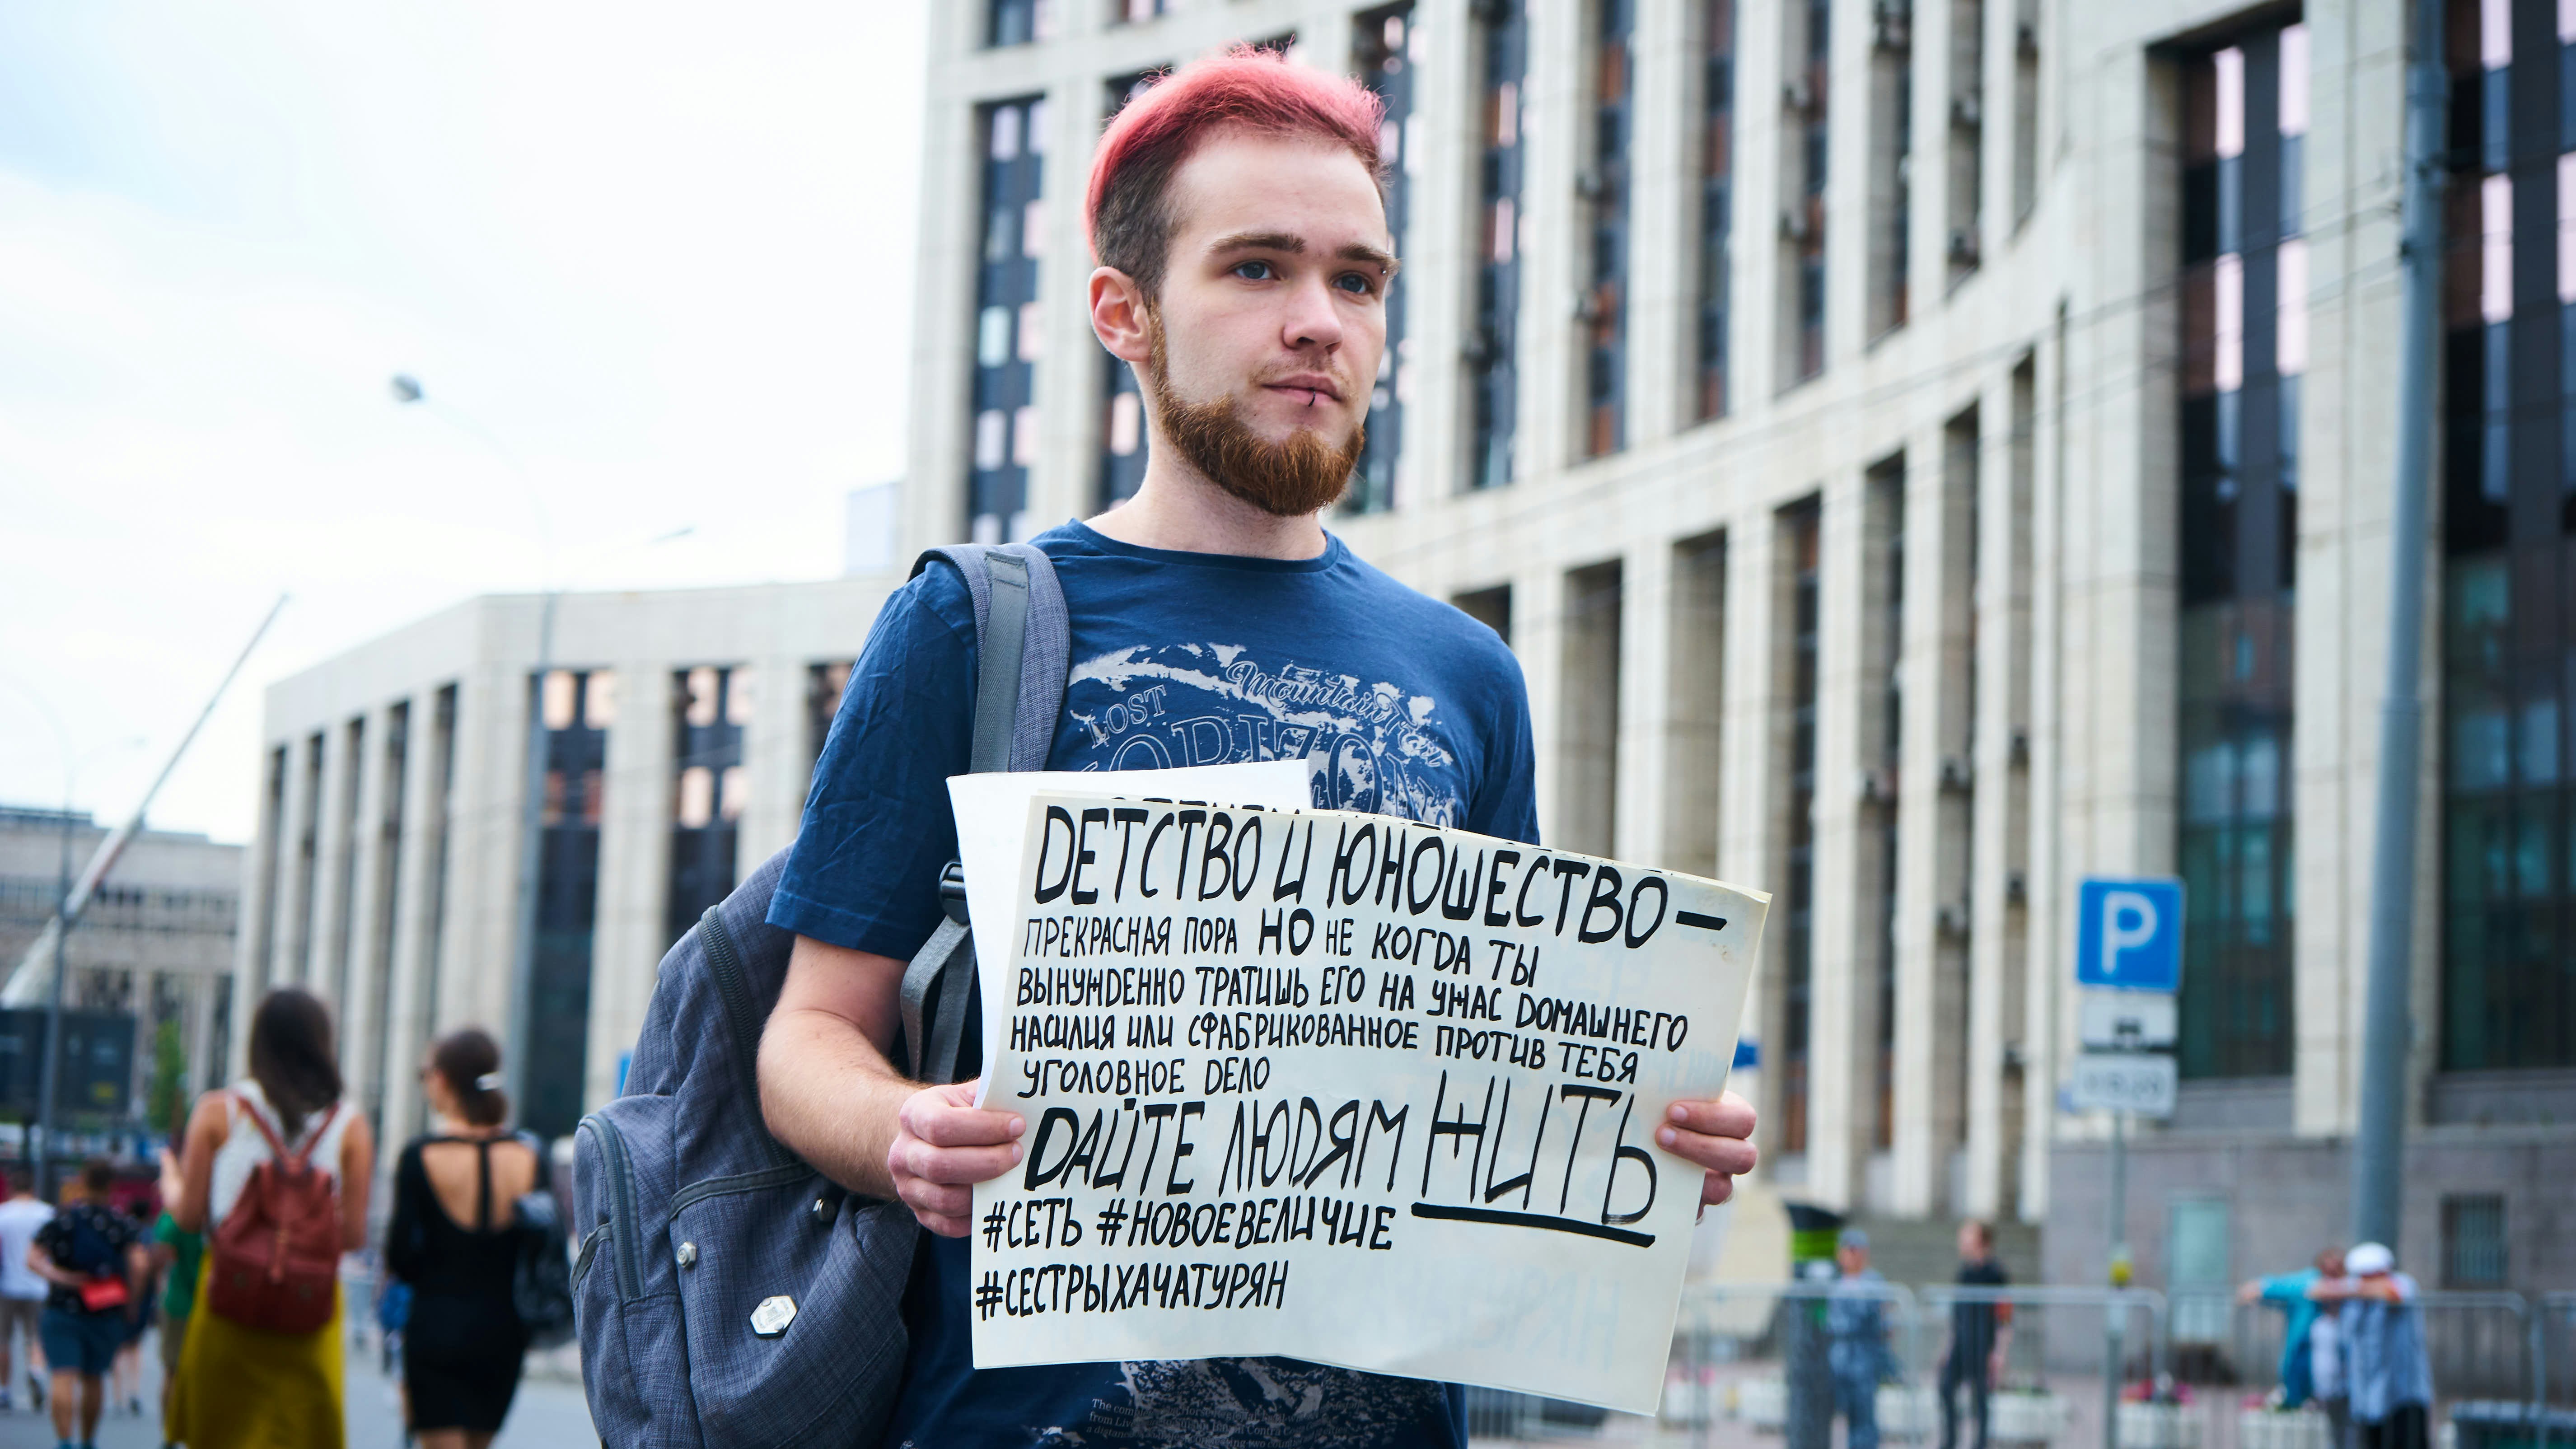 Mountain
LOST
ДЕТСТВО И ЮНОШЕСТВО —
ПРЕКРАСНАЯ ПОРА НО НЕ КОГДА ТЫ
ВЫНУЖДЕННО ТРАТИШЬ ЕГО НА УЖАС ДОМАШНЕГО
НАСИЛИЯ ИЛИ СФАБРИКОВАННОЕ ПРОТИВ ТЕБЯ
УГОЛОВНОЕ ДЕЛО
ДАЙТЕ ЛЮДЯМ ЖИТЬ
#СЕТЬ #НОВОЕВЕЛИЧИЕ
#СЕСТРЫХАЧАТУРЯН
P